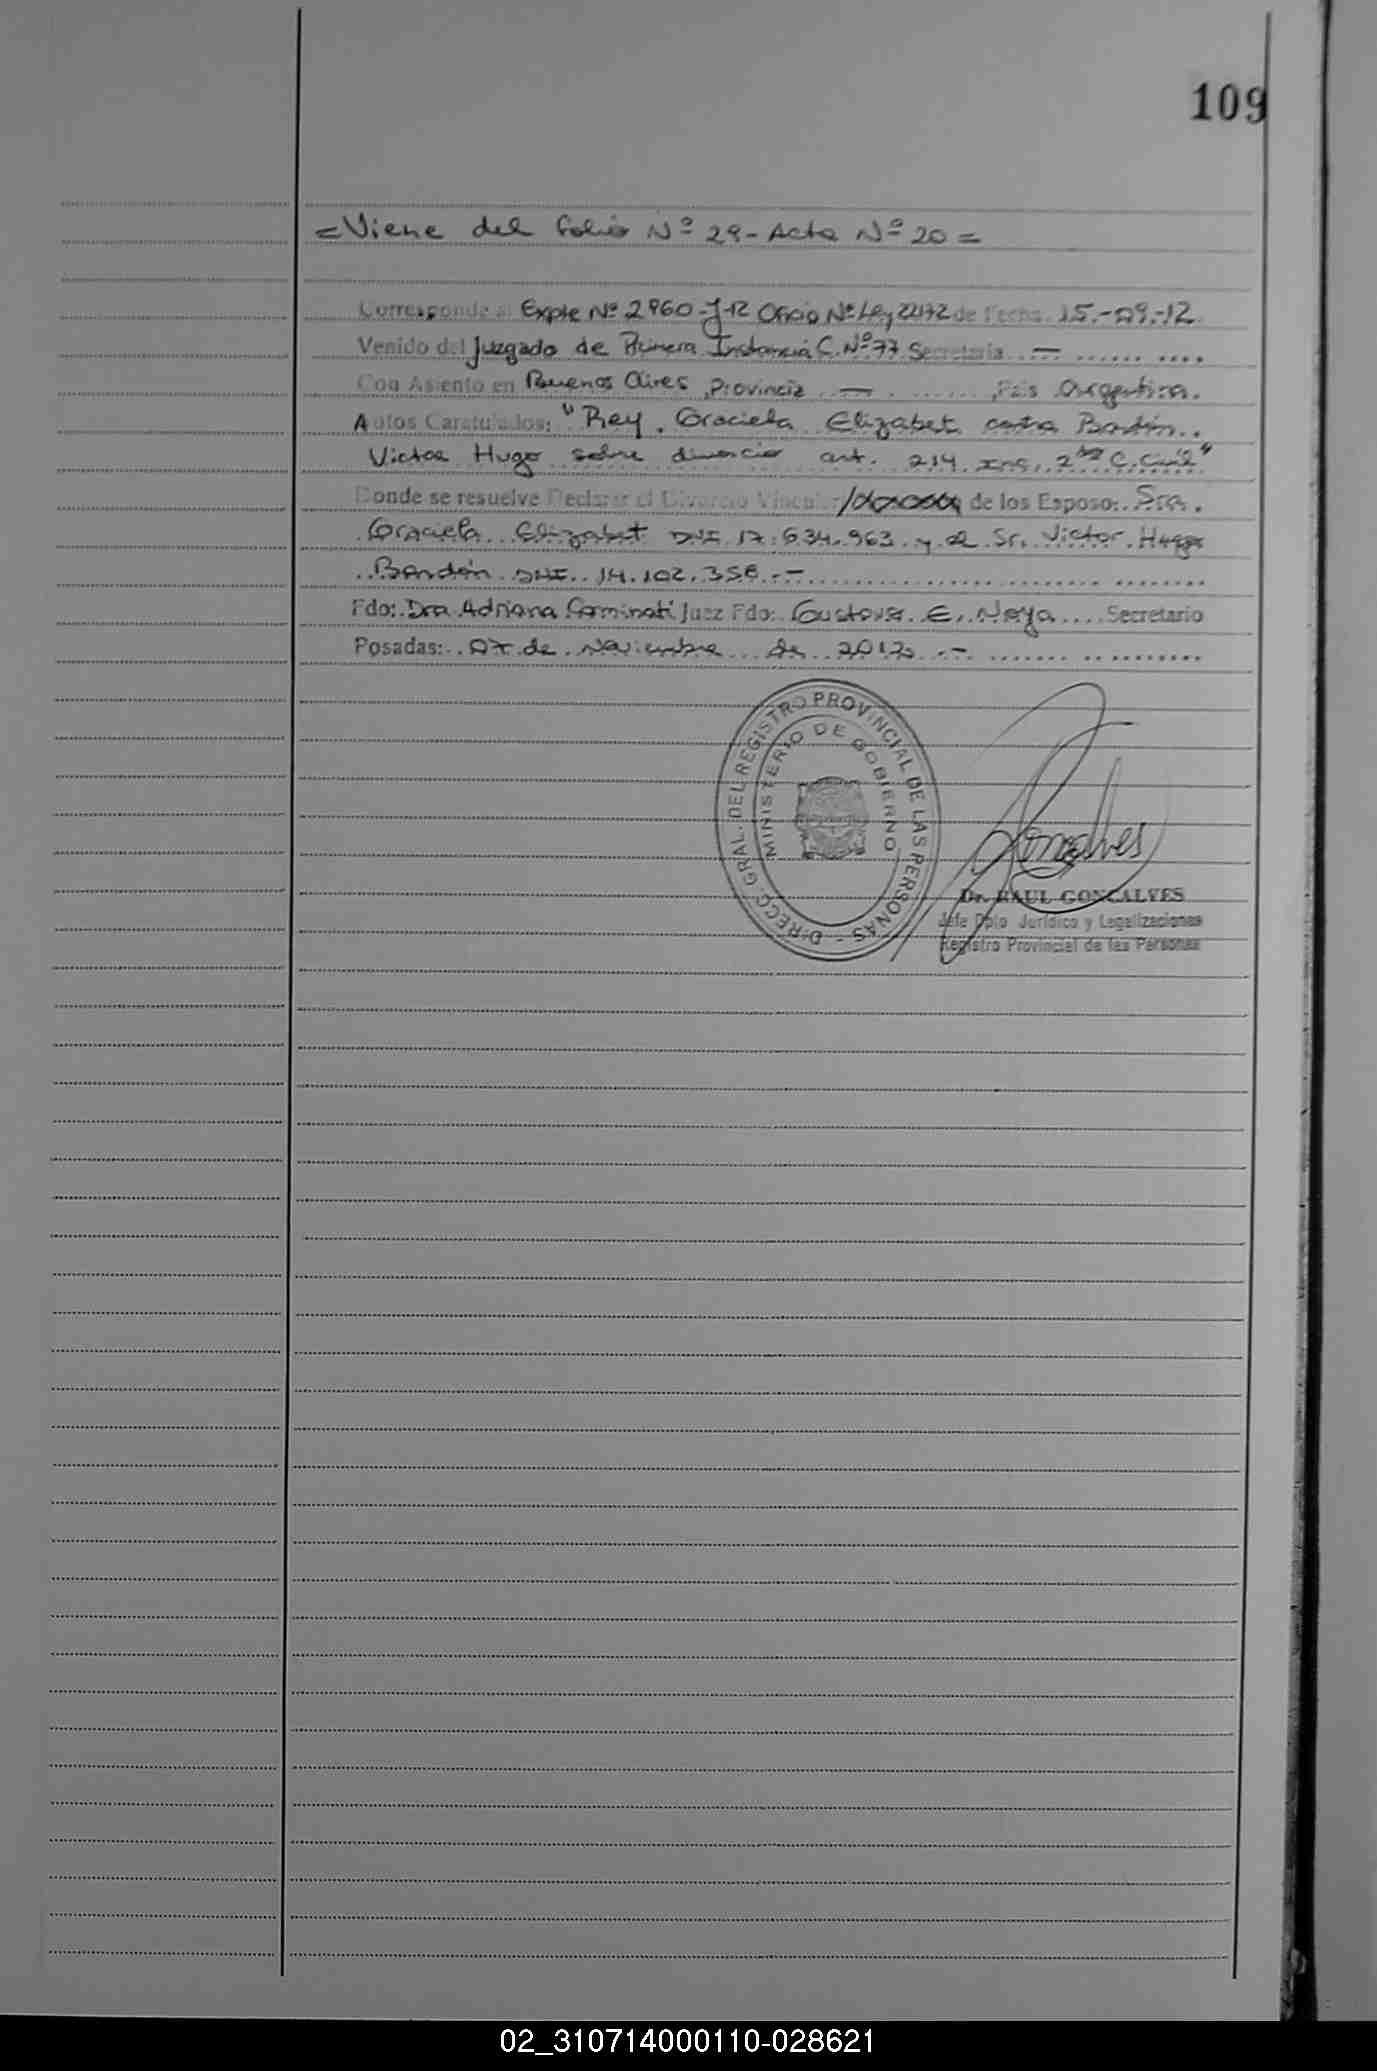 109
= Viene del folio Nº 29 - Acta Nº 20 =
Corresponde al Expte Nº 2960-J-12 Oficio Nº Ley 22172 de Fecha 15.-09.-12
Venido del Juzgado de Primera Instancia C. Nº 77 Secretaria —
Con Asiento en Buenos Aires, Provincia — , País Argentina.
Autos Caratulados: "Rey, Graciela Elizabet contra Bordón
Victor Hugo sobre divorcio art. 214 inc. 2do C. Civil"
Donde se resuelve Declarar el Divorcio Vincular de los Esposo: Sra.
Graciela Elizabet DNI 17.634.963 y el Sr. Victor Hugo
Bordón DNI 14.102.358.-
Fdo: Dra Adriana Juez Fdo: Gustavo E. Noya Secretario
Posadas: 07 de Noviembre de 2012 .-
DIRECC. GRAL. DEL REGISTRO PROVINCIAL DE LAS PERSONAS -
MINISTERIO DE GOBIERNO
Goncalves
Dr. RAUL GONCALVES
Jefe Dpto Jurídico y Legalizaciones
Registro Provincial de las Personas
02_310714000110-028621